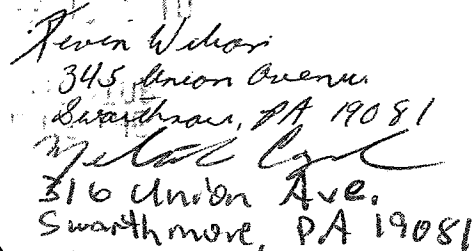 Kevin
345 Union Avenue
Swarthmore, PA 19081
316 Union Ave.
Swarthmore, PA 19081